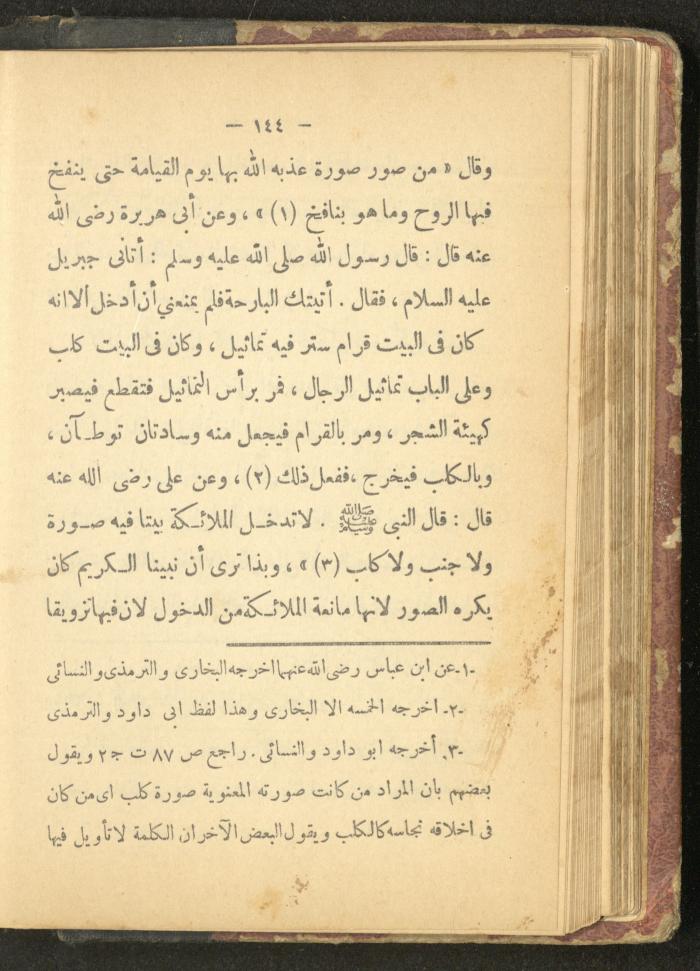 — ١٤٤ —
وقال « من صور صورة عذبه الله بها يوم القيامة حتى ينفخ
فيها الروح وما هو بنافخ (١) » ، وعن أبى هريرة رضى الله
عنه قال : قال رسول الله صلى الله عليه وسلم : أتانى جبريل
عليه السلام ، فقال . أتيتك البارحة فلم يمنعني أن أدخل ألا انه
كان فى البيت قرام ستر فيه تماثيل ، وكان فى البيت كلب
وعلى الباب تماثيل الرجال ، فمر برأس التماثيل فتقطع فيصبر
كهيئة الشجر ، ومر بالقرام فيجعل منه وسادتان توطـآن ،
وبالكلب فيخرج ، ففعل ذلك (٢) ، وعن على رضى الله عنه
قال : قال النبى ﷺ . لا تدخـل الملائـكة بيتا فيه صـورة
ولا جنب ولا كاب (٣) » ، وبذا ترى أن نبينا الـكريم كان
يكره الصور لانها مانعة الملائـكة من الدخول لان فيها تزويقا
-١- عن ابن عباس رضى الله عنهما اخرجه البخارى و الترمذى و النسائى
-٢- اخرجه الخمسه الا البخارى وهذا لفظ ابى داود والترمذى
-٣- أخرجه ابو داود والنسائى . راجع ص ٨٧ ت ج ٢ ويقول
بعضهم بان المراد من كانت صورته المعنوية صورة كلب اى من كان
فى اخلاقه نجاسه كالكلب ويقول البعض الآخر ان الكلمة لا تأويل فيها